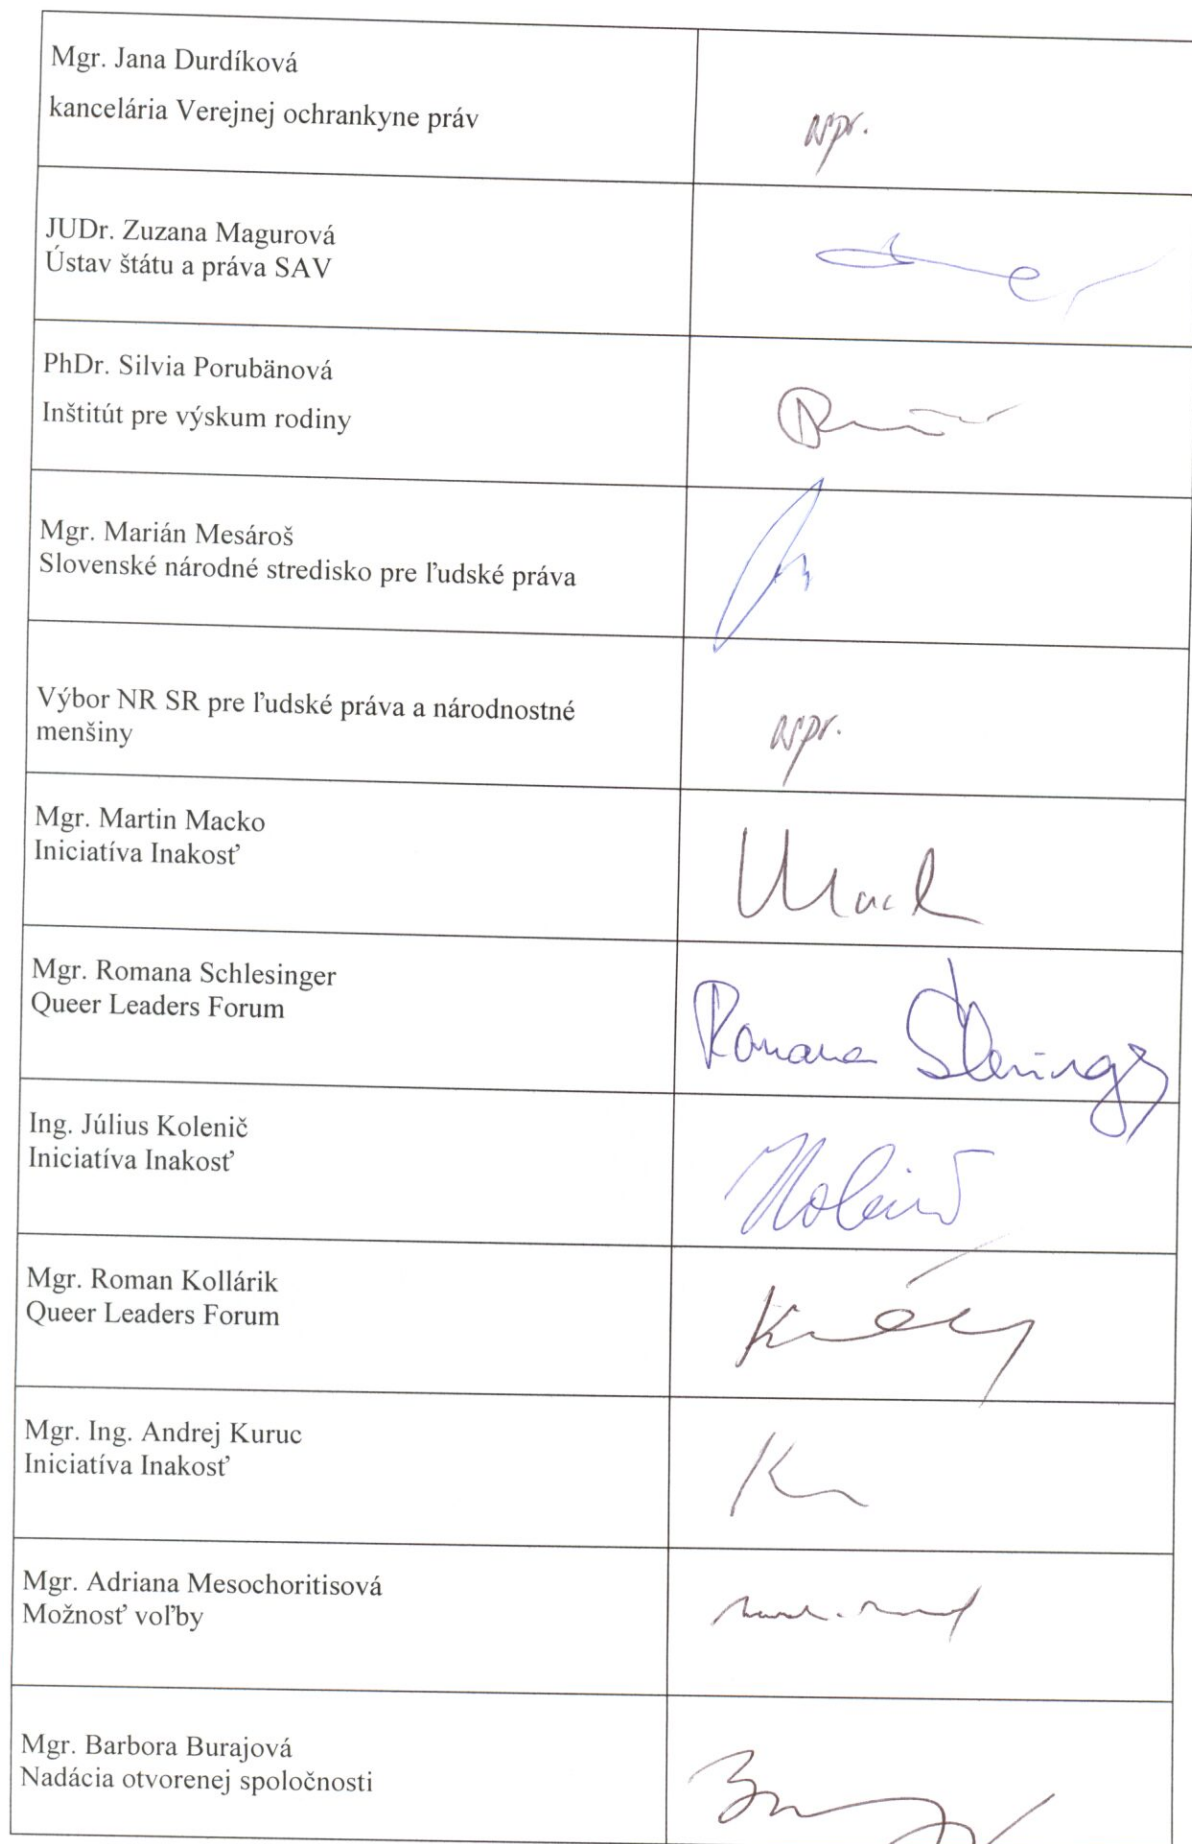 Mgr. Jana Durdíková
kancelária Verejnej ochrankyne práv
JUDr. Zuzana Magurová
Ústav štátu a práva SAV
PhDr. Silvia Porubänová
Inštitút pre výskum rodiny
Mgr. Marián Mesároš
Slovenské národné stredisko pre ľudské práva
Výbor NR SR pre ľudské práva a národnostné
menšiny
Mgr. Martin Macko
Iniciatíva Inakosť
Mgr. Romana Schlesinger
Queer Leaders Forum
Romana
Ing. Július Kolenič
Iniciatíva Inakosť
Mgr. Roman Kollárik
Queer Leaders Forum
Mgr. Ing. Andrej Kuruc
Iniciatíva Inakosť
Mgr. Adriana Mesochoritisová
Možnosť voľby
Mgr. Barbora Burajová
Nadácia otvorenej spoločnosti